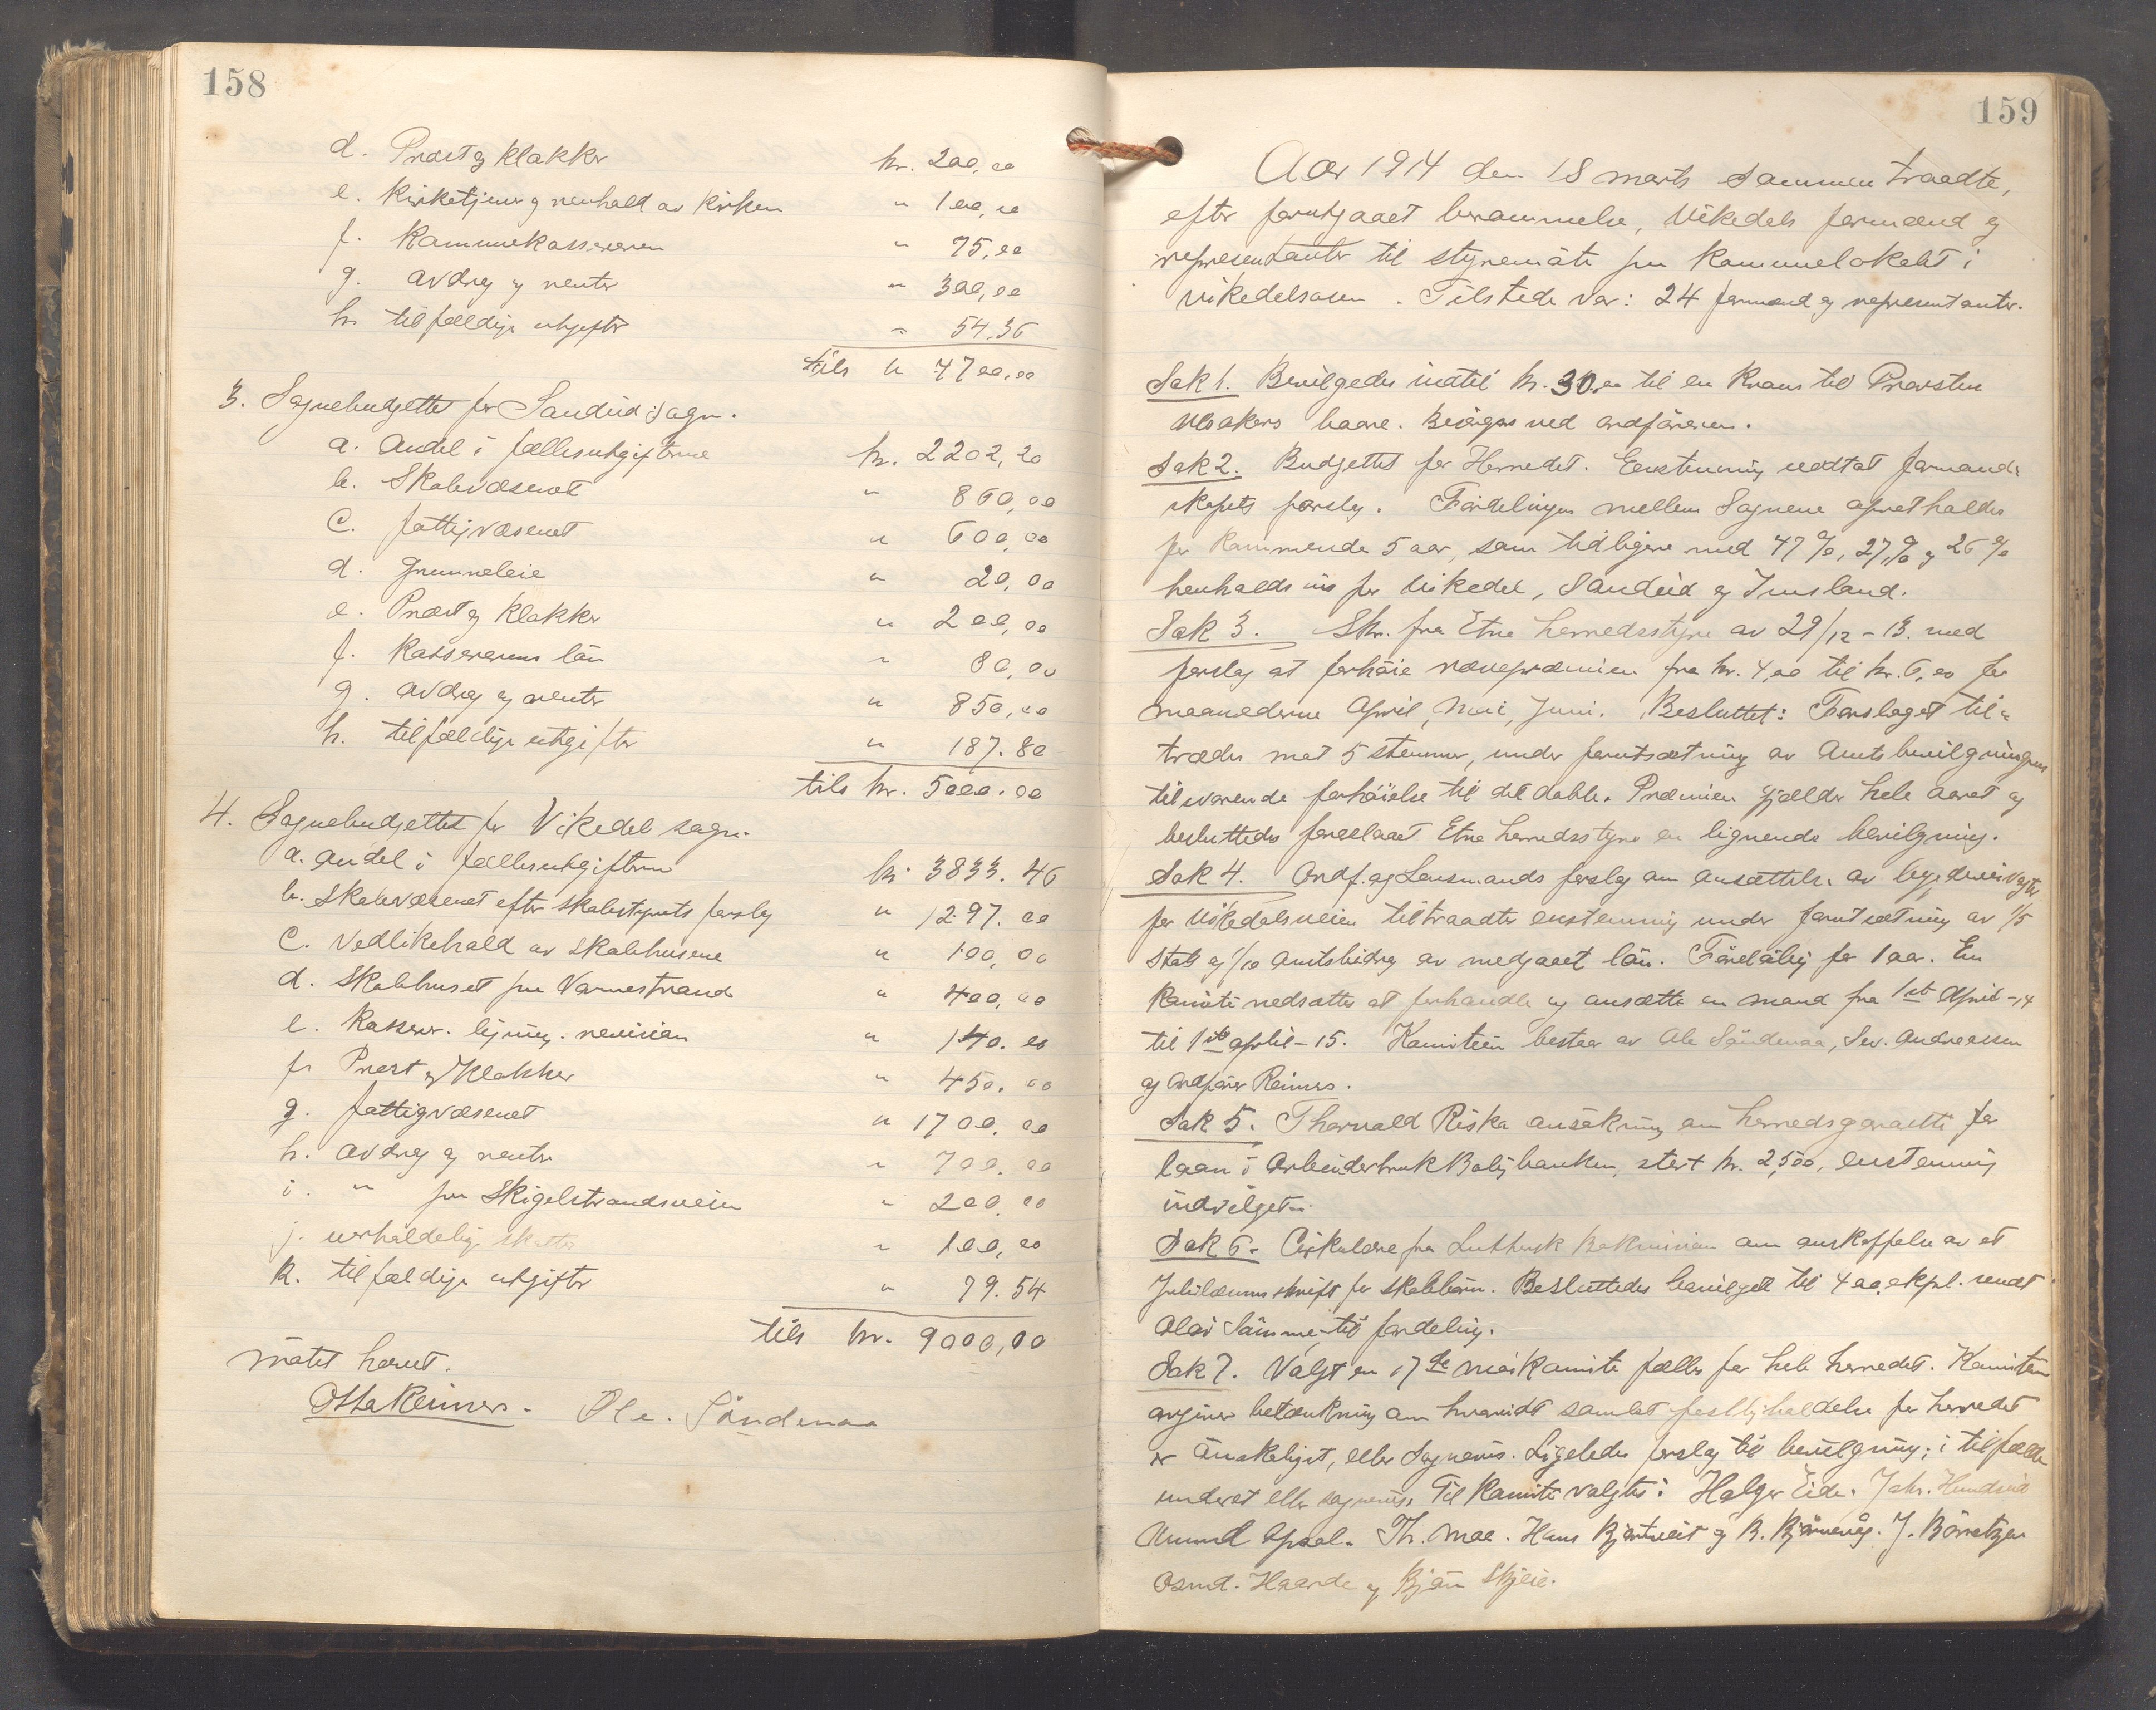 158
d. Præst og klokker kr. 200,00
e. Kirketjener og renhold av kirken " 100,00
f. Kommunekassereren " 75,00
g. avdrag og renter " 300,00
h. tilfældige utgifter " 54,36
tils " 4700,00
3. Sognebudgettet for Sandeid sogn.
a. Andel i fællesutgifterne kr. 2202,20
b. Skolevæsenet " 860,00
c. fattigvæsenet " 600,00
d. Grunneleie " 20,00
e. Præst og klokker " 200,00
f. Kassererens løn " 80,00
g. avdrag og renter " 850,00
h. tilfældige utgifter " 187.80
tils kr. 5000.00
4. Sognebudgettet for Vikedal sogn.
a. andel i fællesutgifterne kr. 3833.46
b. Skolevæsenet efter skolestyrets forslag " 1297.00
c. Vedlikehold av skolehusene " 100,00
d. Skolehuset paa Varnestrand " 400,00
e. Kasserer. ligning. revision " 140.00
f. Præst og Klokker " 450.00
g. fattigvæsenet " 1700.00
h. avdrag og renter " 700.00
i. " paa Skigelstrandsveien " 200.00
j. uerholdelige skatter " 100,00
k. tilfældige utgifter " 79.54
tils kr. 9000,00
møtet hævet.
Otto Reimers. Ole. Søndenaa
159
Aar 1914 den 18 marts sammentraadte,
efter forutgaaet berammelse, Vikedals formænd og
representanter til styremøte paa Kommunelokalet i
Vikedalsosen. Tilstede var: 24 formænd og representanter.
Sak 1. Bevilgedes indtil kr. 30.00 til en Krans til Provsten
baare. Besørges ved ordføreren.
Sak 2. Budgettet for Herredet. Enstemmig vedtat formand-
skapets forslag. Fordelingen mellem Sognene opretholdes
for kommende 5 aar, som tidligere med 47 %, 27 % og 26 %
henholdsvis for Vikedal, Sandeid og Imsland.
Sak 3. Skr. fra Etne herredsstyre av 29/12 - 13. med
forslag at forhøie rævepræmien fra kr. 4,00 til kr. 6,00 for
maanederne April, Mai, Juni. Besluttet: Forslaget til-
trædes mot 5 stemmer, under forutsætning av Amtsbevilgningens
tilsvarende forhøielse til det doble. Præmien gjælder hele aaret og
besluttedes foreslaaet Etne herredsstyre en lignende bevilgning.
Sak 4. Ordf. og Lensmands forslag om ansættelse av bygdeveivogter
for Vikedalsveien tiltraadtes enstemmig under forutsætning av 1/5
Stats og 1/10 Amtsbidrag av medgaaet løn. Foreløbig for 1 aar. En
Komite nedsattes at forhandle og ansætte en mand fra 1ste April - 14
til 1ste april - 15. Komiteen bestaar av Ole Søndenaa, Sev. Andreassen
og Ordfører Reimers.
Sak 5. Thorvald Riska ansøkning om herredsgaranti for
laan i Arbeiderbruk Boligbanken, stort kr. 2,500, enstemmig
indvilget.
Sak 6. Cirkulære fra Luthersk Bokmision om anskaffelse av et
Jubilæumsskrift for skolebørn. Besluttedes bevilget til 400 expl. sendt
Olav Sømme til fordeling.
Sak 7. Valgt en 17de mai komite fælles for hele herredet. Komiteen
avgiver betænkning om hvorvidt samlet festligholdelse for herredet
er ønskeligst, eller sognevis. Ligeledes forslag til bevilgning; i tilfælde
under et eller sognevis. Til komite valgtes: Holger Eide. Johs. Hundseid
Amund Opsal. Th. Moe. Hans Bjøntveit og B. Bjørnevåg. J. Børretzen
Osmd. Haarde og Bjørn Skjeie.